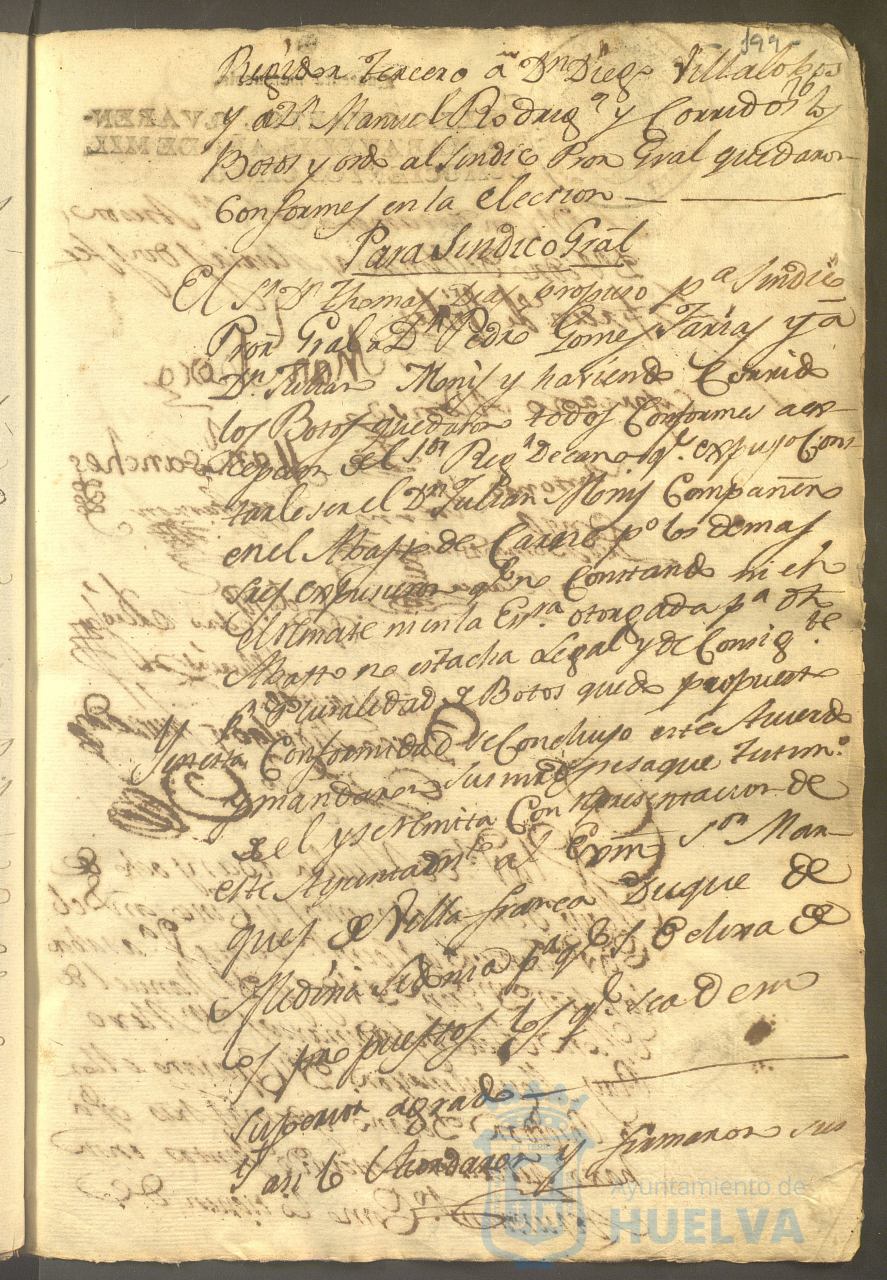 199
Regidor tercero á Dn Diego Villalobos
y á Dn Manuel Rodrigz y Corridos los
Botos y ordn al Sindico Pror Gral quedaron
Conformes en la eleccion
Para Sindico Gral
El Sr Dn Thomas Dias Propuso pa Sindico
Pror Gral a Dn Pedro Gomes Farias y á
Dn Julian Monis y haviendo Corrido
los Botos quedaron todos Conformes a ex-
cepcion del Sor Regr Decano qe. expuso Cons-
tarle ser el Dn Julian Monis Compañero
en el Abasto de Carne po los demas
sres expusieron qe no Constando ni en
el remate ni en la Essra. otorgada pa dho
Abasto no es tacha Legal y de Consigte
pr Pluralidad de Botos quedo propuesto
Y en esta Conformidad se Concluyo este Acuerdo
y mandaron sus mrds se saque Testimo.
de el y se remita Con representacion de
este Ayuntamto al Exmo Sor Mar-
ques de Villafranca Duque de
Medina Sidonia pa qe se elixa de
los propuestos los qe sea de su
superior agrado
Y asi lo Acordaron y firmaron sus
Ayuntamiento de
HUELVA